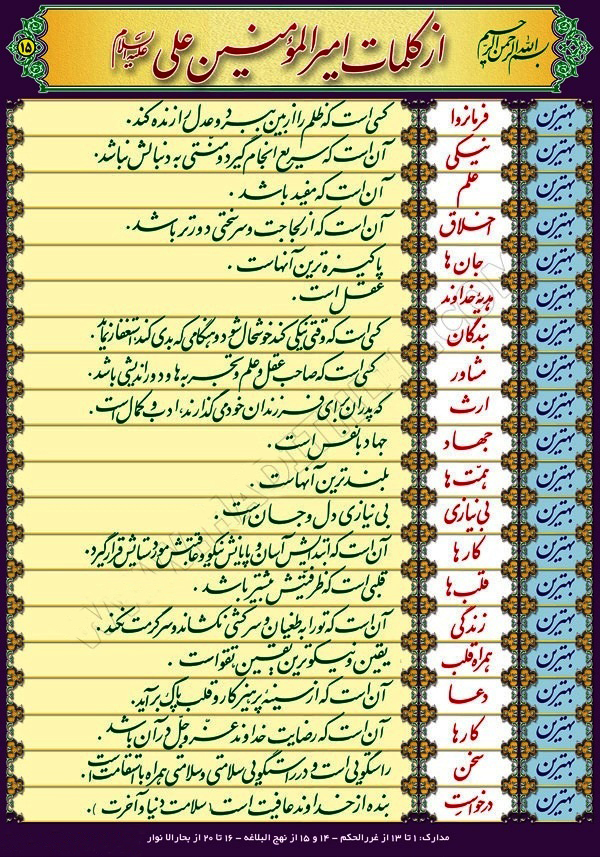 بسم الله الرحمن الرحیم
از کلمات امیرالمؤمنین علی علیه السلام
۱۵
بهترین فرمانروا کسی است که ظلم را از بین ببرد و عدل را زنده کند.
بهترین نیکی آن است که سریع انجام گیرد و منتی به دنبالش نباشد.
بهترین علم آن است که مفید باشد.
بهترین اخلاق آن است که از لجاجت و سرسختی دورتر باشد.
بهترین جان ها پاکیزه ترین آنهاست.
بهترین هدیه خداوند عقل است.
بهترین بندگان کسی است که وقتی نیکی کند خوشحال شود و هنگامی که بدی کند، استغفار نماید.
بهترین مشاور کسی است که صاحب عقل و علم و تجربه ها و دوراندیشی باشد.
بهترین ارث که پدران برای فرزندان خود می گذارند، ادب و کمال است.
بهترین جهاد جهاد با نفس است.
بهترین همّت ها بلندترین آنهاست.
بهترین بی نیازی بی نیازی دل و جان است.
بهترین کارها آن است که ابتدایش آسان و پایانش نیکو و عاقبتش مورد ستایش قرار گیرد.
بهترین قلب ها قلبی است که ظرفیتش بیشتر باشد.
بهترین زندگی آن است که تو را به طغیان و سرکشی نکشاند و سرگرمت نکند.
بهترین همراه قلب یقین و نیکوترین یقین تقوا است.
بهترین دعا آن است که از سینه پرهیزکار و قلب پاک برآید.
بهترین کارها آن است که رضایت خداوند عزّ و جلّ در آن باشد.
بهترین سخن راستگویی است و در راستگویی سلامتی و سلامتی همراه با استقامت است.
بهترین درخواستِ بنده از خداوند عافیت است (سلامت دنیا و آخرت).
مدارک: ۱ تا ۱۳ از غررالحکم – ۱۴ و ۱۵ از نهج البلاغه – ۱۶ تا ۲۰ از بحارالا نوار